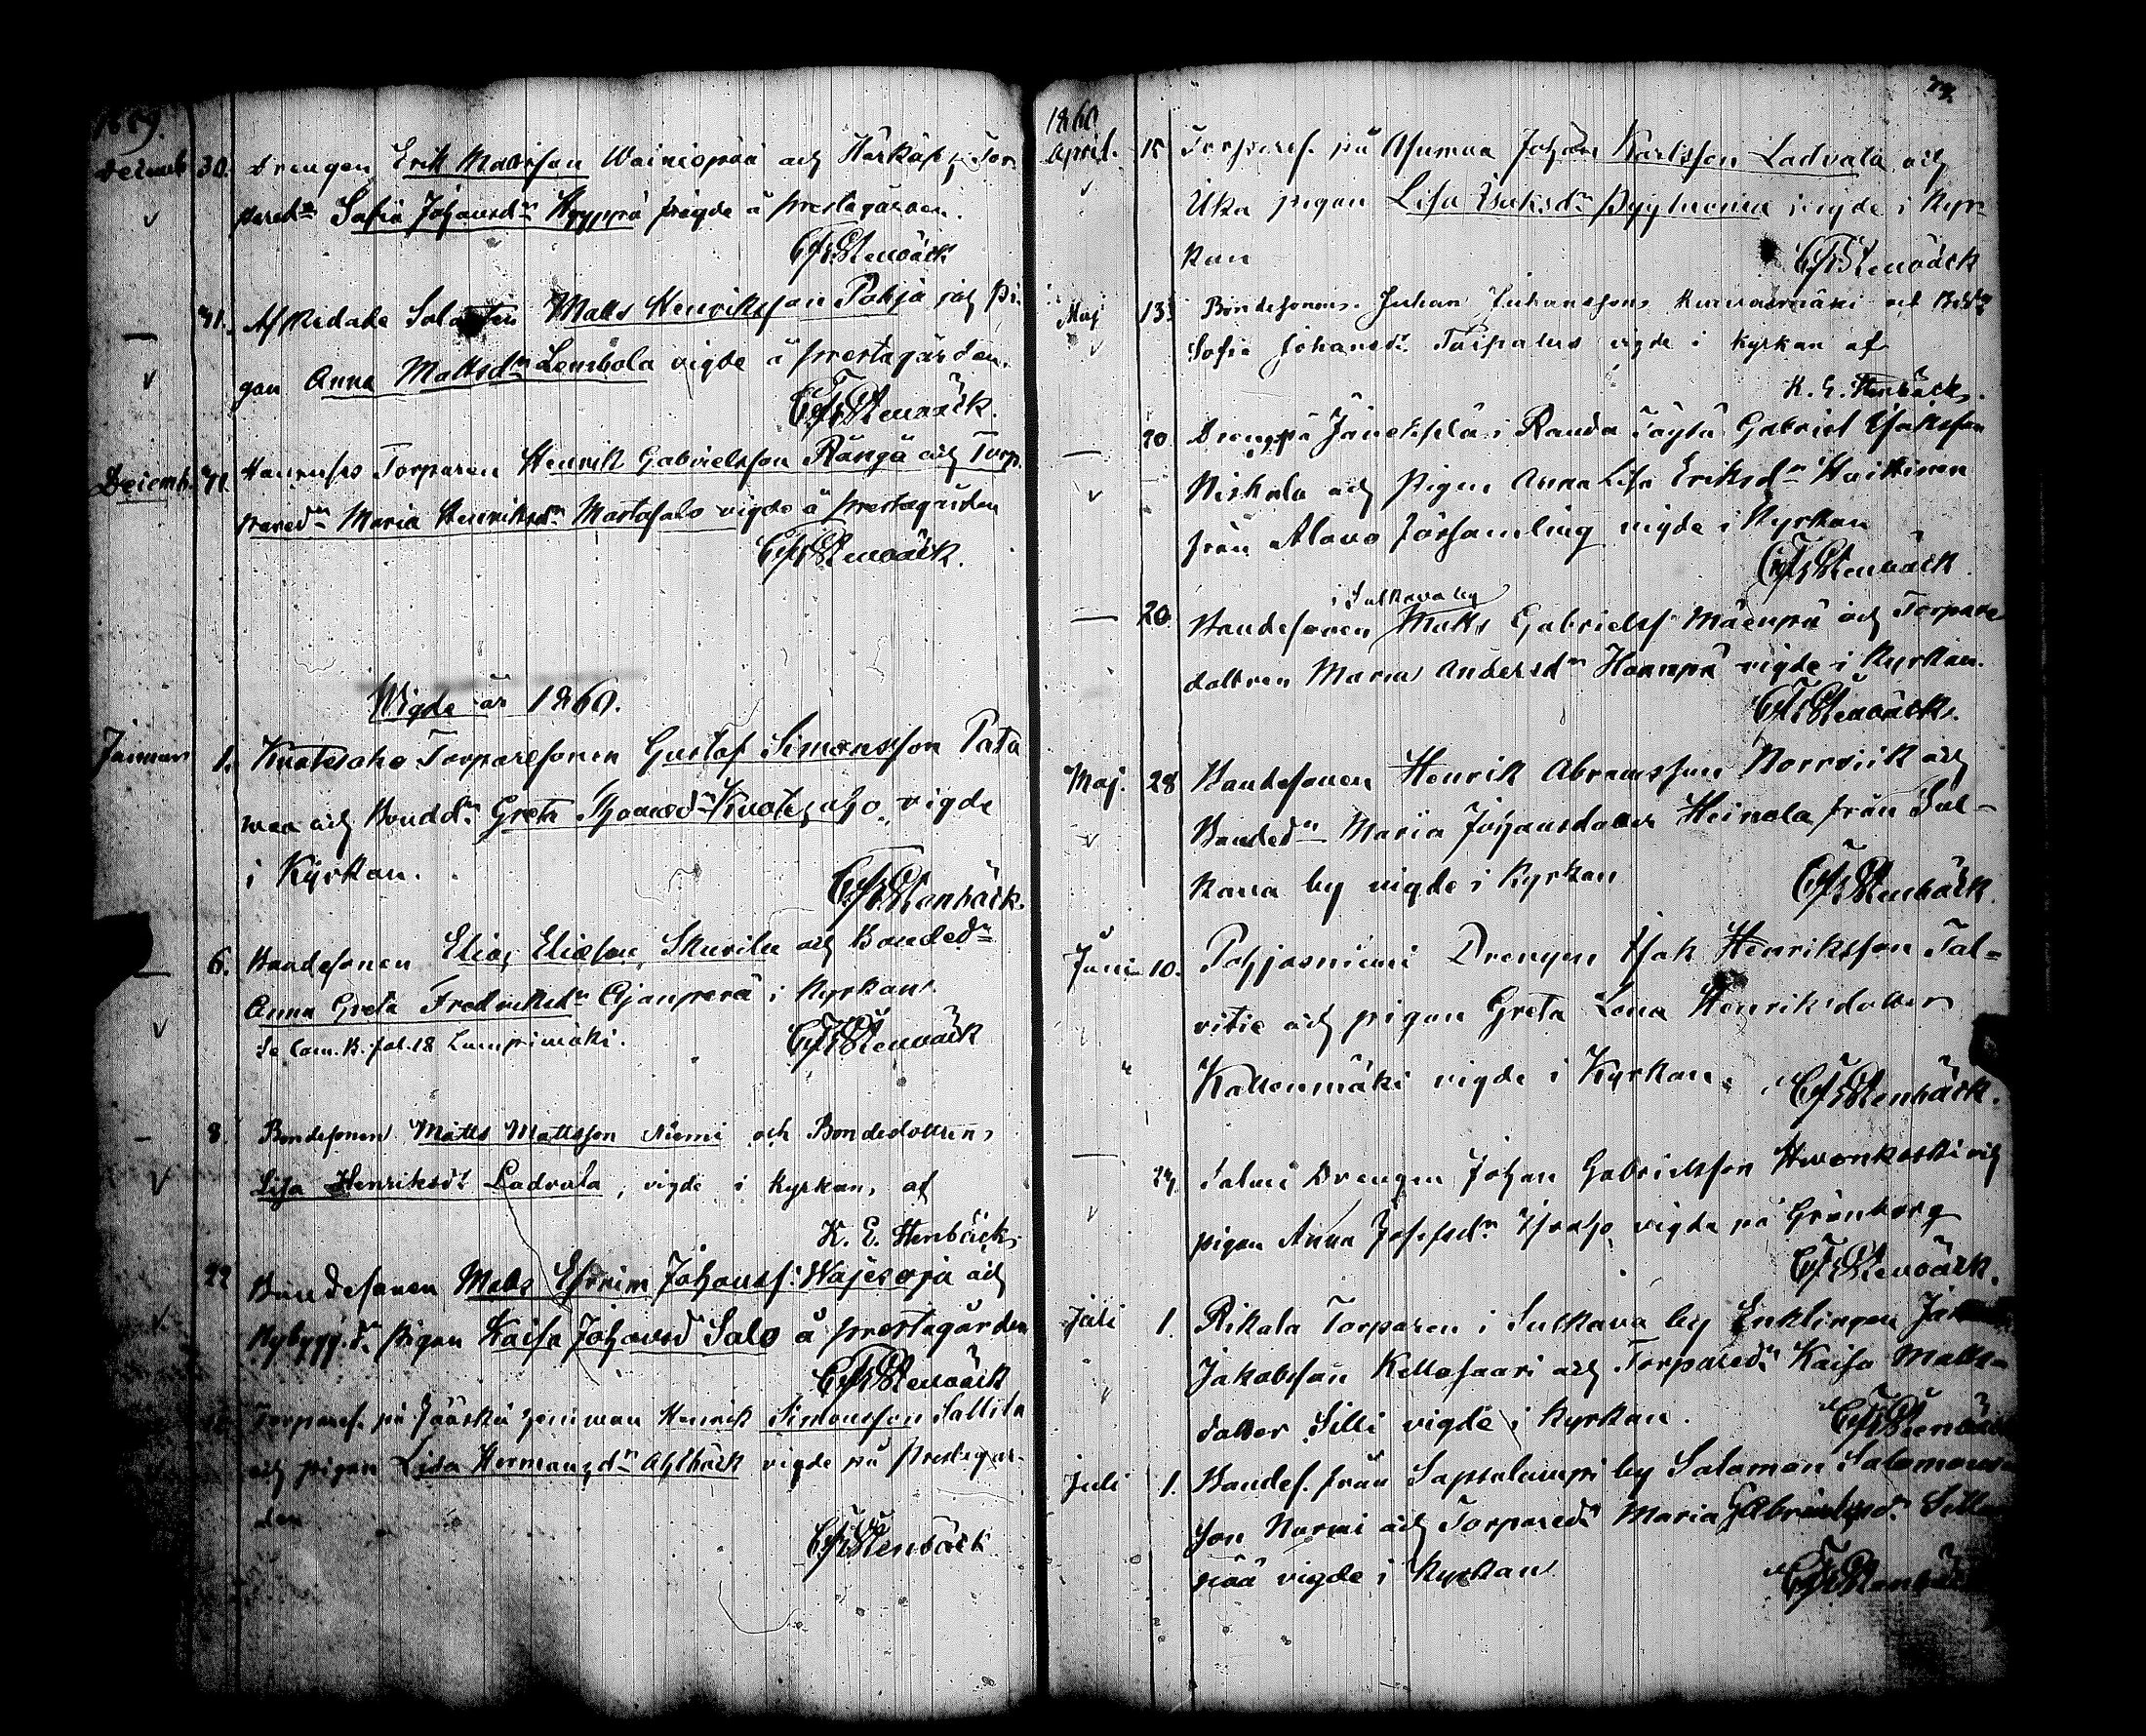 1859.
Decemb 30. Drengen Erik Mattsson Wainionpää och Härkäp. Tor-
pared:n Sofia Johansd:r vigde å prestegården.
C F Stenbäck
31. Afskedade Soldaten Matts Henriksson Pohja och Pi-
gan Anna Mattsd:r Lembola vigde å prestegården.
C F Stenbäck.
Decemb. 31. Torparen Henrik Gabrielsson Rängä och Torp.
pared:n Maria Henriksd:r Mastosalo vigde å prestegården
C F Stenbäck.
Wigde år 1860.
Januari 1. Knoteaho Torparesonen Gustaf Simonsson Pata
maa och Bondd:n Greta Knoteaho vigde
i Kyrkan.
C F Stenbäck.
— 6. Bondesonen Elias Eliasson Skurila och Bonded:n
Anna Greta Fredriksd:r Ojanperä i Kyrkan.
Se Com. B. fol. 18 Lampimäki.
C F Stenbäck
— 8. Bondesonen Matts Mattsson Niemi och Bondedottren,
Lisa Henriksdr Ladvala, vigde i kyrkan, af
K. E. Stenbäck.
22 Bondesonen Matts Efraim Johansf: och
Nybygg.d:r Pigan Kaisa Johansd Salo å prestegården
C F Stenbäck
Torparef. på Jääskä Henrik Simonsson Sallila
och pigan Lisa Hermansd:r Ahlbäck vigde på Prestegår-
den
C F Stenbäck
1860
April. 15 Torparef. på Asumaa Johan Karlsson Ladvala och
pigan Lisa Isaksd:r vigde i Kyr-
kan
C F Stenbäck
Maj 13. Bondesonen. Juhan Juhansson och
Sofia Johansd:r Taipalus vigde i kyrkan af
K. E. Stenbäck.
— 20. Dreng på i Randa Töysä Gabriel Isaksson
Niskala och Pigan Anna Lisa Eriksd:r
från Alavo Församling vigde i Kyrkan
C F Stenbäck
i Sulkava by
— 20. Bondesonen Matts Gabrielsf Mäenpä och Torpare
dottren Maria Andersd:r Haanpä vigde i Kyrkan.
C F Stenbäck.
Maj. 28 Bondesonen Henrik Abramsson Norrvik och
Bonded:n Maria Johansdotter Heinola från Sul-
kava by vigde i kyrkan
C F Stenbäck.
Juni 10. Pohjasniemi Drengen Isak Henriksson Tal-
vitie och pigan Greta Lena Henriksdotter
Kattenmäki vigde i Kyrkan.
C F Stenbäck.
— 24. Salmi Drengen Johan Gabrielsson Hvonkoski och
pigan Anna Josefsd:r vigde på Grönberg
C F Stenbäck.
Juli 1. Rikala Torparen i Sulkava by Enklingen
Jakobsson Kellosaari och Torpared:n Kaisa Matts-
dotter Silli vigde i Kyrkan.
C F Stenbäck
Juli 1. Bondef. från Sapsalampi by Salomon Salomons
son Nurmi och Torpared:n Maria Gabrielsd:r
pää vigde i Kyrkan
C F Stenbäck